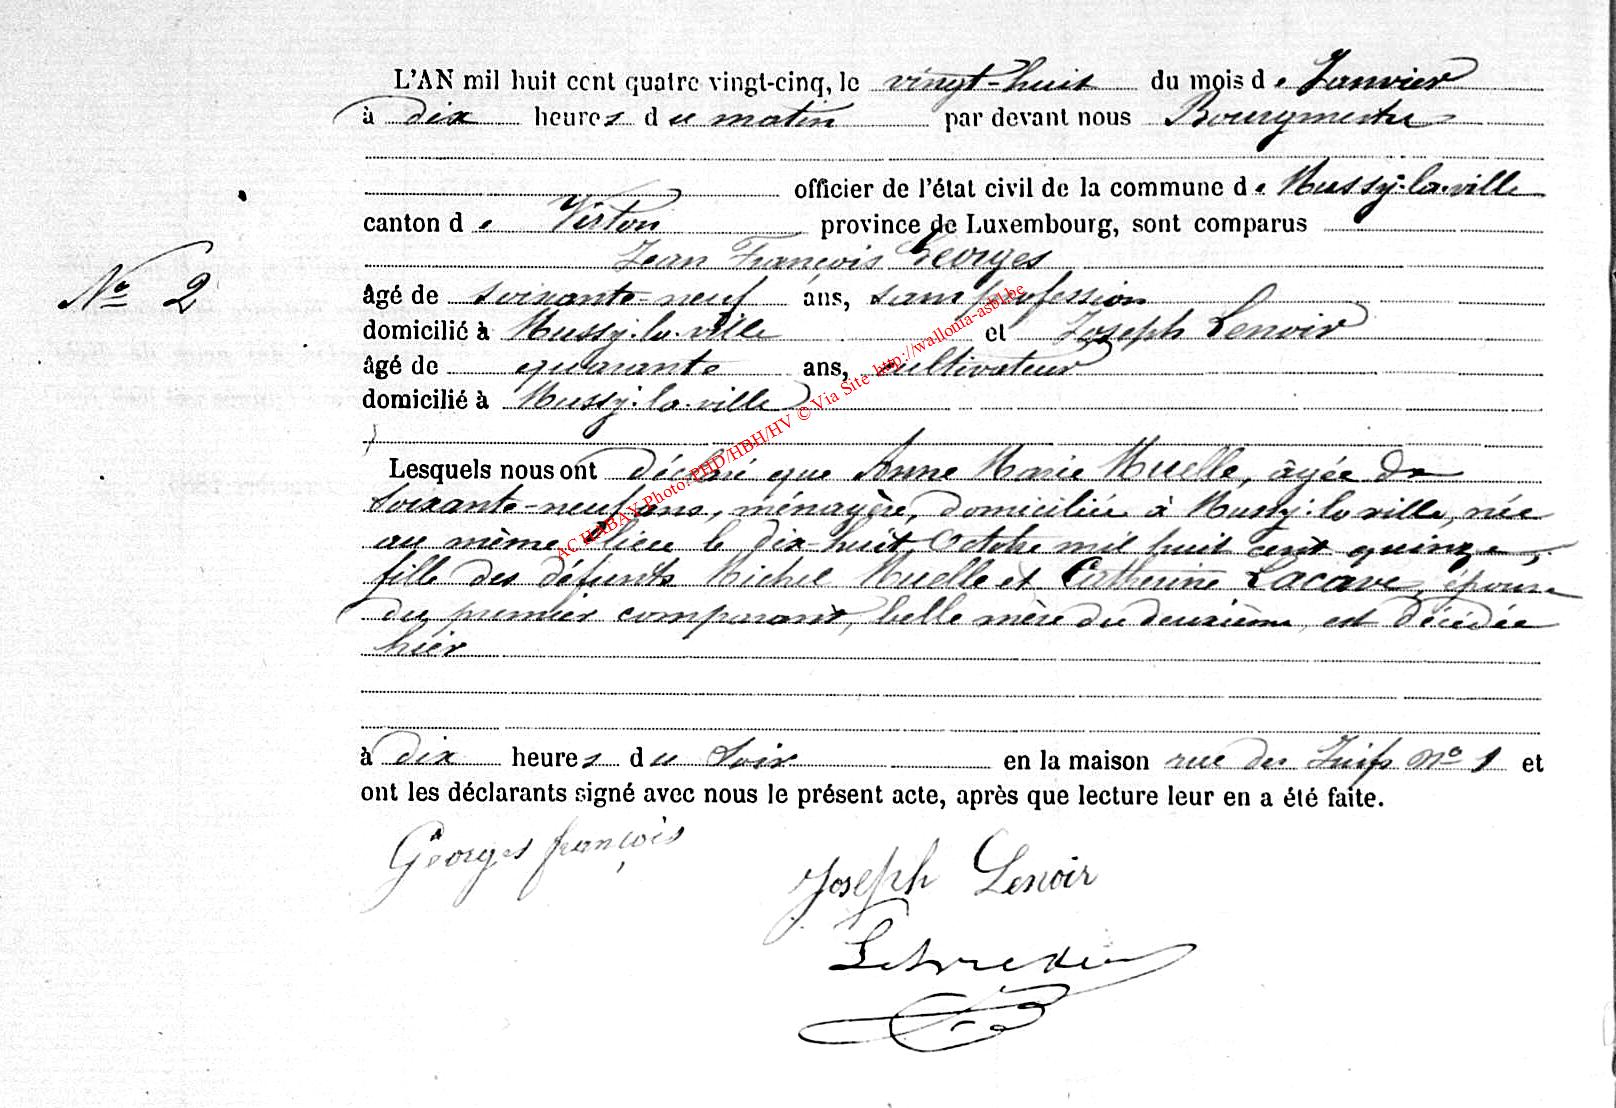 L'AN mil huit cent quatre vingt-cinq, le vingt-huit du mois de Janvier
à dix heures du matin par devant nous Bourgmestre
officier de l'état civil de la commune de Mussy-la-ville
canton de Virton province de Luxembourg, sont comparus
Jean François Georges
N° 2
âgé de soixante-neuf ans, sans profession
domicilié à Mussy-la-ville et Joseph Lenoir
âgé de quarante ans, cultivateur
domicilié à Mussy-la-ville
Lesquels nous ont déclaré que Anne Marie Muelle, âgée de
soixante-neuf ans, ménagère, domiciliée à Mussy-la-ville, née
au même lieu le dix-huit Octobre mil huit cent quinze,
fille des défunts Michel Muelle et Catherine Lacave, épouse
du premier comparant, belle mère du deuxième, est décédée
hier
à dix heures du soir en la maison rue des Juifs N° 1 et
ont les déclarants signé avec nous le présent acte, après que lecture leur en a été faite.
Georges françois
Joseph Lenoir
AC HABAY Photo: PHD/HBH/HV © Via Site http://wallonia-asbl.be